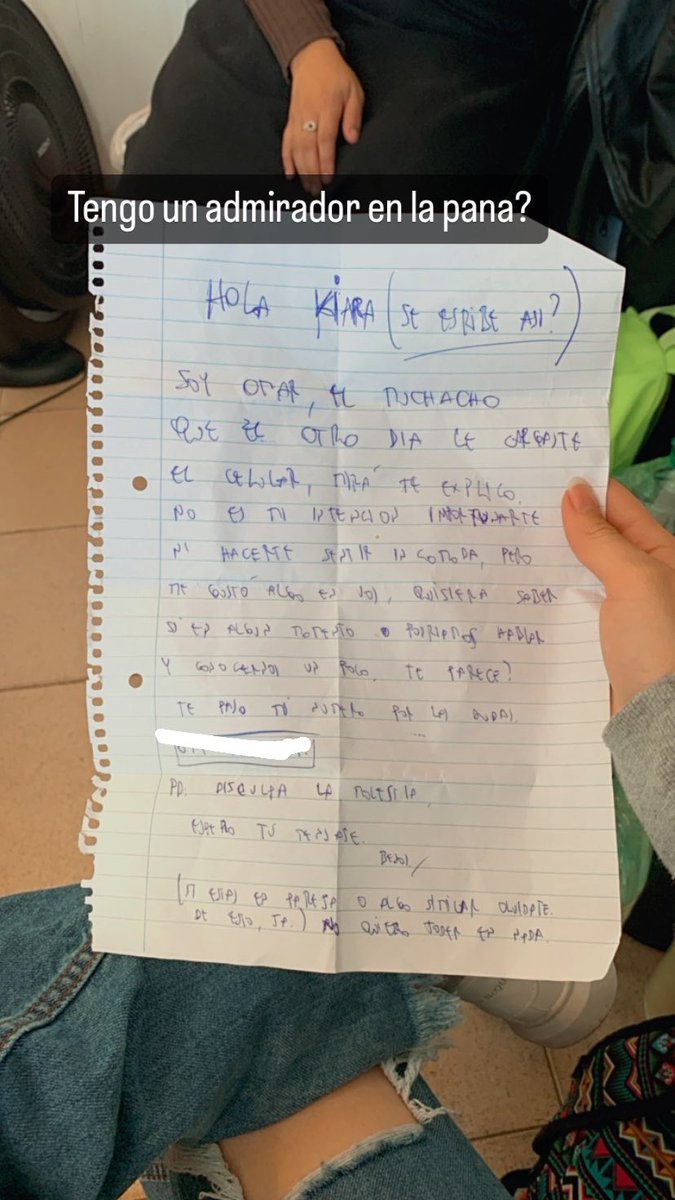 Tengo un admirador en la pana?
HOLA KIARA (SE ESRIBE ASI?)
SOY OMAR, EL MUCHACHO
QUE EL OTRO DIA LE CARGASTE
EL CELULAR, MIRÁ TE EXPLICO,
NO ES MI INTENCION IMPORTUNARTE
NI HACERTE SENTIR INCOMODA, PERO
ME GUSTÓ ALGO EN VOS, QUISIERA SABER
SI EN ALGUN MOMENTO PODRIAMOS HABLAR
Y CONOCERNOS UN POCO, TE PARECE?
TE PASO MI NUMERO POR LAS DUDAS
...
PD: DISCULPA LA MOLESTIA,
ESPERO TU MENSAJE.
BESOS/
(SI ESTAS EN PAREJA O ALGO SIMILAR OLVIDATE
DE ESTO, JA.) NO QUIERO JODER EN NADA.